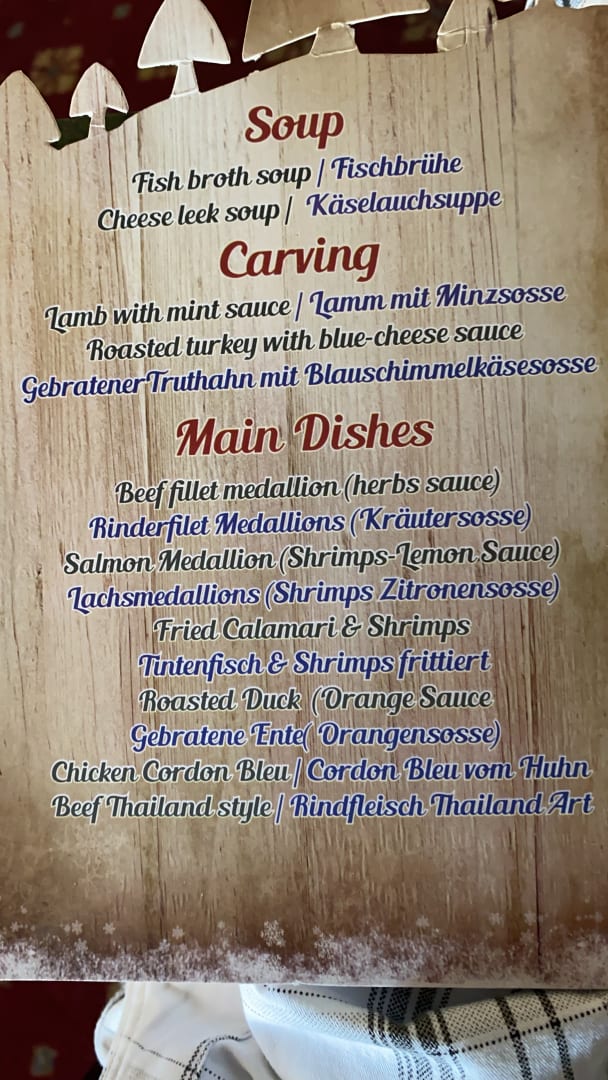 Soup
Fish broth soup / Fischbrühe
Cheese leek soup / Käselauchsuppe
Carving
Lamb with mint sauce / Lamm mit Minzsosse
Roasted turkey with blue-cheese sauce
Gebratener Truthahn mit Blauschimmelkäsesosse
Main Dishes
Beef fillet medallion (herbs sauce)
Rinderfilet Medallions (Kräutersosse)
Salmon Medallion (Shrimps-Lemon Sauce)
Lachsmedallions (Shrimps Zitronensosse)
Fried Calamari & Shrimps
Tintenfisch & Shrimps frittiert
Roasted Duck (Orange Sauce
Gebratene Ente( Orangensosse)
Chicken Cordon Bleu / Cordon Bleu vom Huhn
Beef Thailand style / Rindfleisch Thailand Art